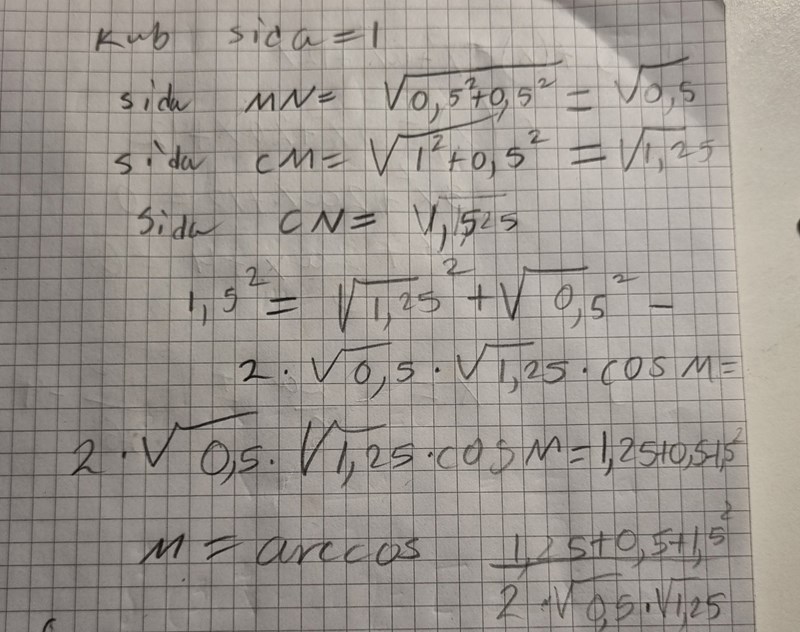 Kub sida=1
sida MN= √0,5²+0,5² = √0,5
sida CM= √1²+0,5² = √1,25
Sida CN=
1,5² = √1,25² + √0,5² -
2·√0,5·√1,25·cos M=
2·√0,5·√1,25·cos M=1,25+0,5+1,5²
M = arccos 1,25+0,5+1,5²
2·√0,5·√1,25